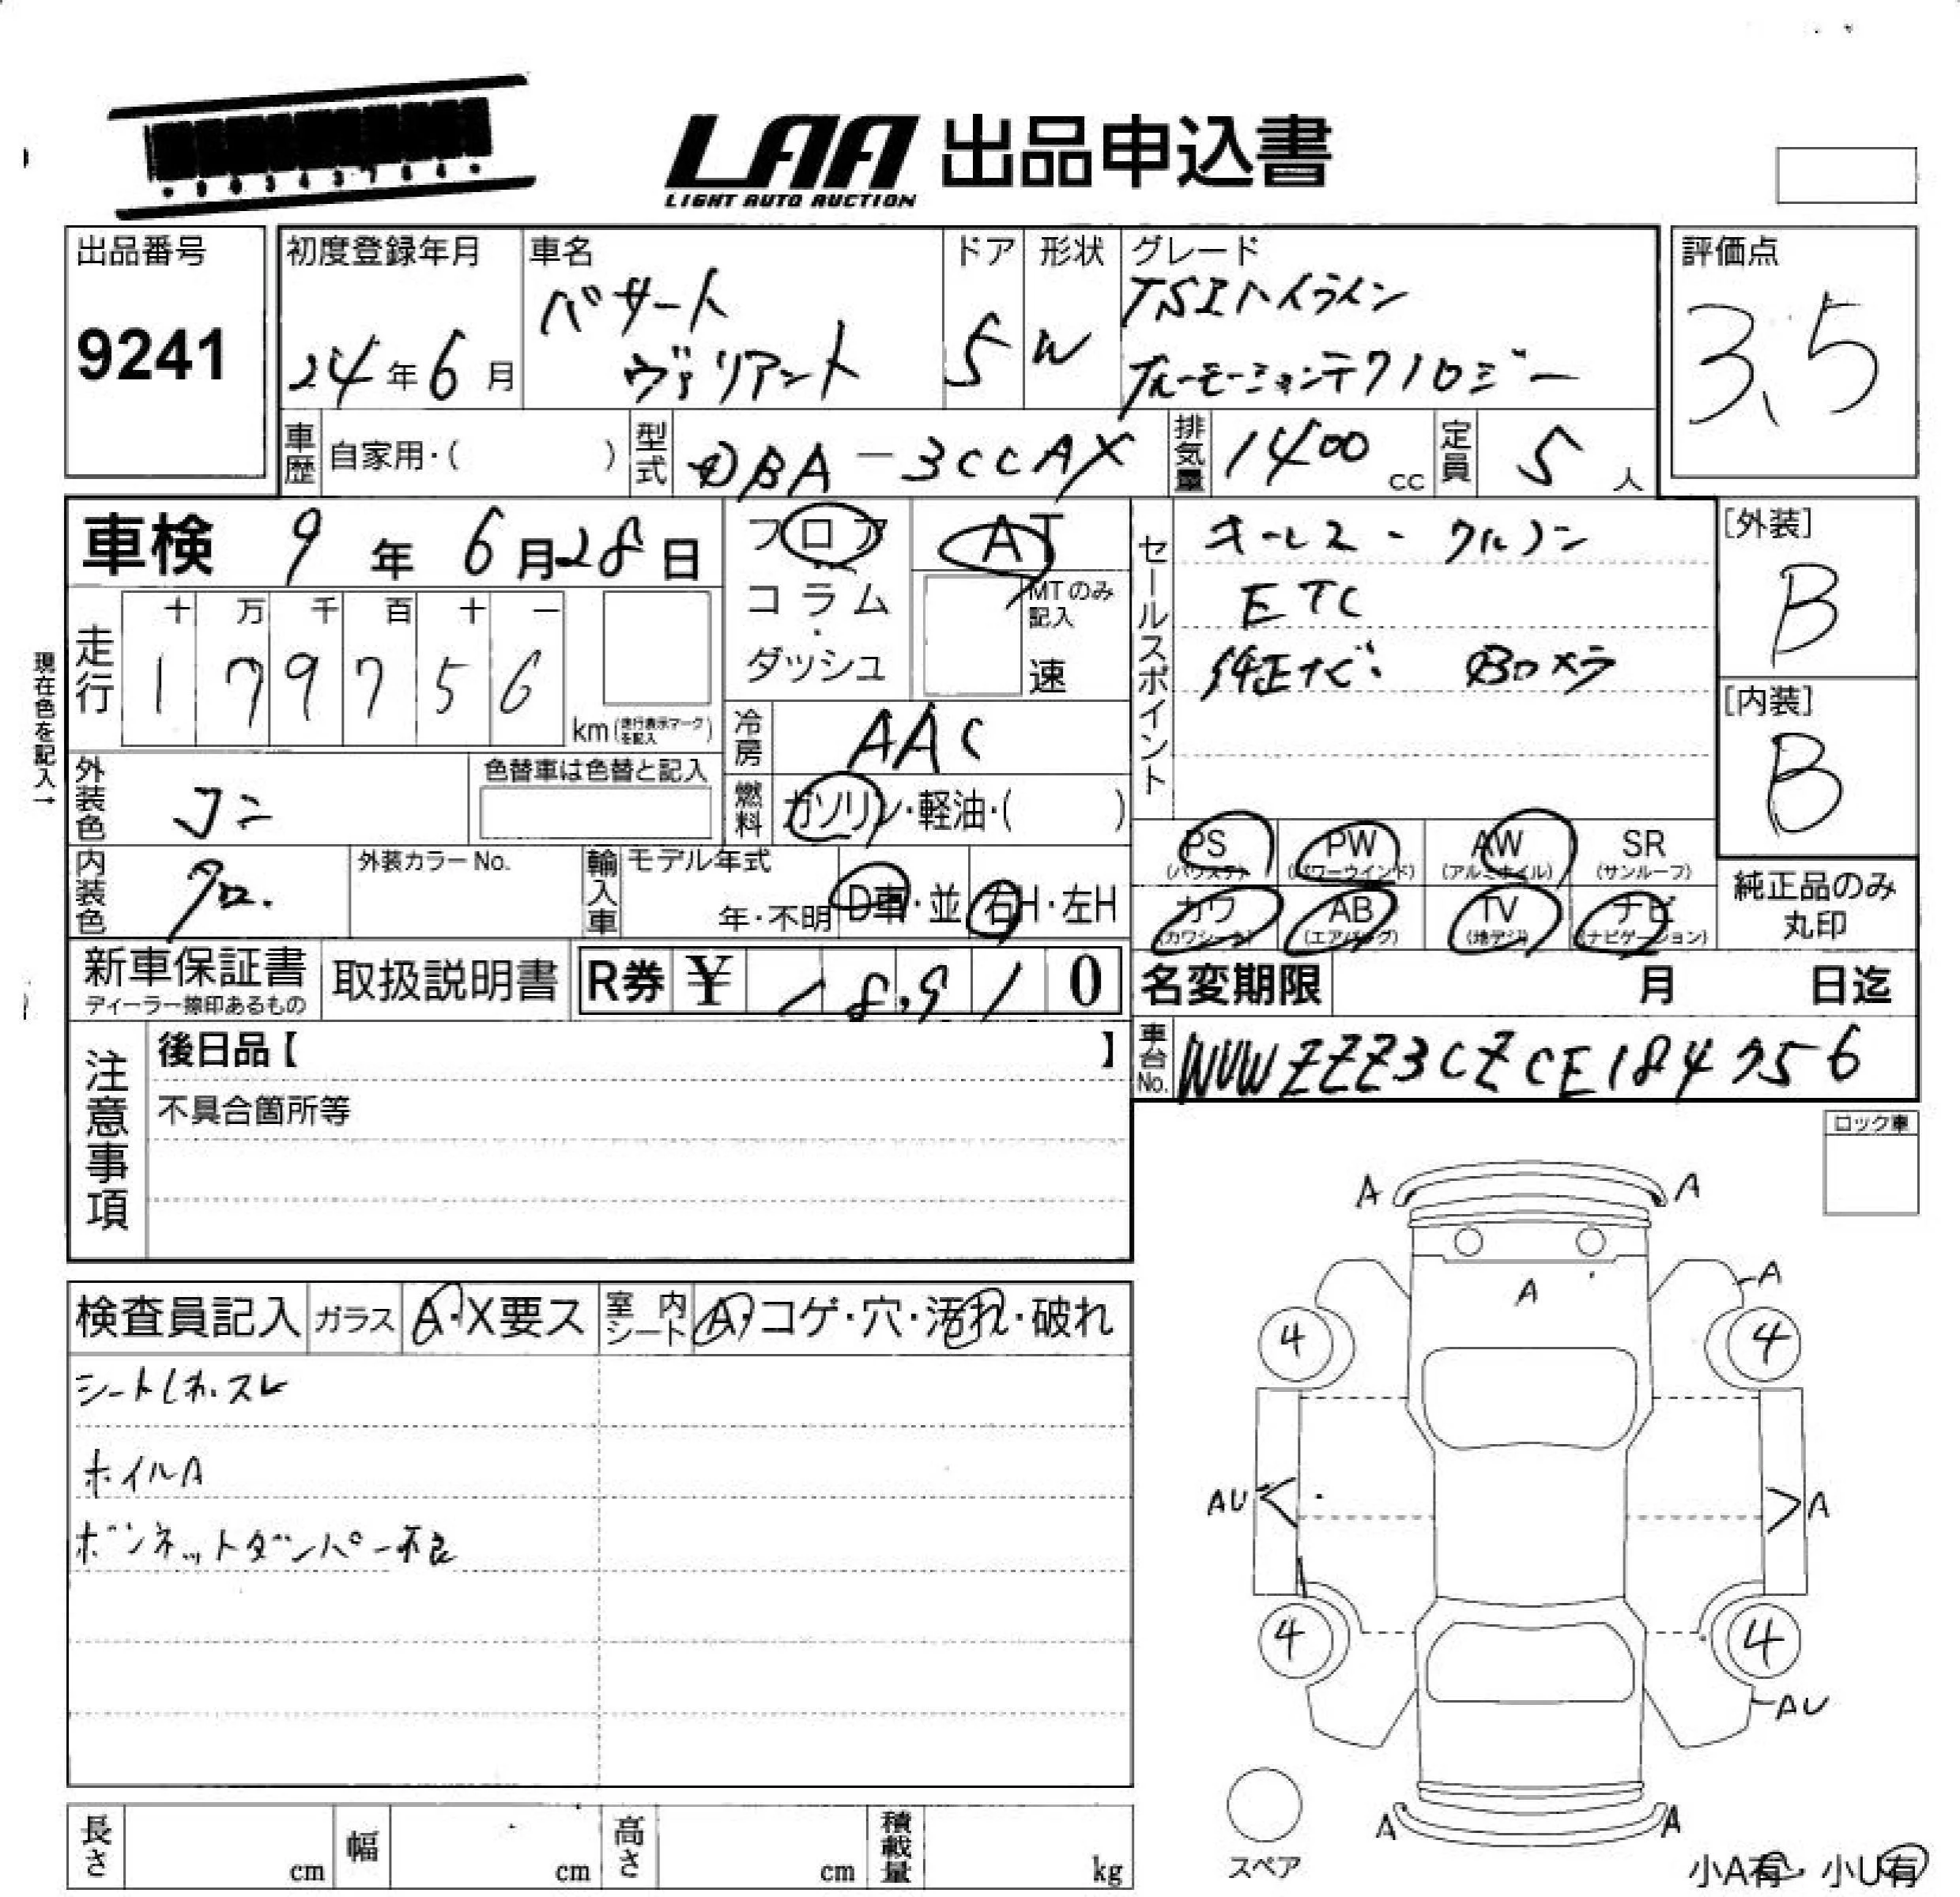 LAA 出品申込書
LIGHT AUTO AUCTION
出品番号
9241
初度登録年月
24年6月
車名
パサート
ヴァリアント
ドア
5
形状
W
グレード
TSIハイライン
ブルーモーションテクノロジー
評価点
3.5
車歴 自家用・( )
型式 DBA-3CCAX
排気量 1400 cc
定員 5 人
車検 9年6月28日
フロア
コラム
・
ダッシュ
AT
MTのみ記入
速
セールスポイント
キーレス・クルコン
ETC
純正ナビ・Bカメラ
[外装]
B
[内装]
B
現在色を記入→
走行
十 万 千 百 十 一
1 7 9 7 5 6
km(走行表示マークを記入)
冷房 AAC
外装色 コン
色替車は色替と記入
燃料 ガソリン・軽油・( )
内装色 クロ.
外装カラーNo.
輸入車 モデル年式
年・不明
D車・並
右H・左H
PS (パワステ)
PW (パワーウインド)
AW (アルミホイル)
SR (サンルーフ)
カワ (カワシート)
AB (エアバッグ)
TV (地デジ)
ナビ (ナビゲーション)
純正品のみ
丸印
新車保証書
ディーラー捺印あるもの
取扱説明書
R券 ¥ 18,910
名変期限 月 日迄
車台No. WVWZZZ3CZCE184756
注意事項
後日品【 】
不具合箇所等
ロック車
検査員記入
ガラス A・X要ス
室内シート A・コゲ・穴・汚れ・破れ
シートしわ.スレ
ホイルA
ボンネットダンパー不良
A A
A
A
4 4
AU A
4 4
AU
A A
スペア
小A有 小U有
長さ cm
幅 cm
高さ cm
積載量 kg